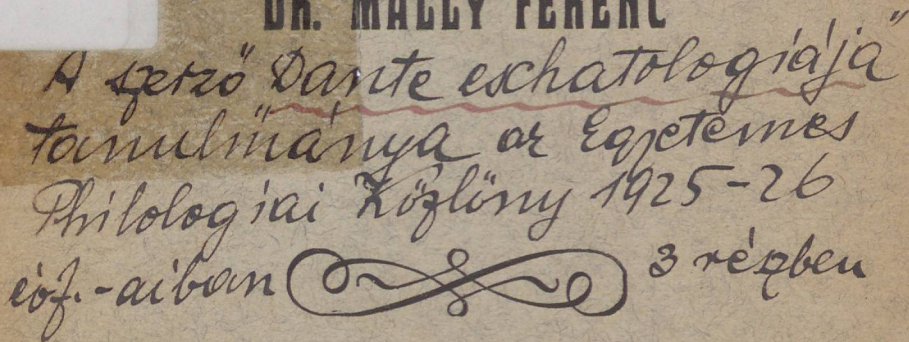 DR. MALLY FERENC
A szerző Dante eschatologiája”
tanulmánya az Egyetemes
Philologiai Közlöny 1925-26
évf.-aiban 3 részben